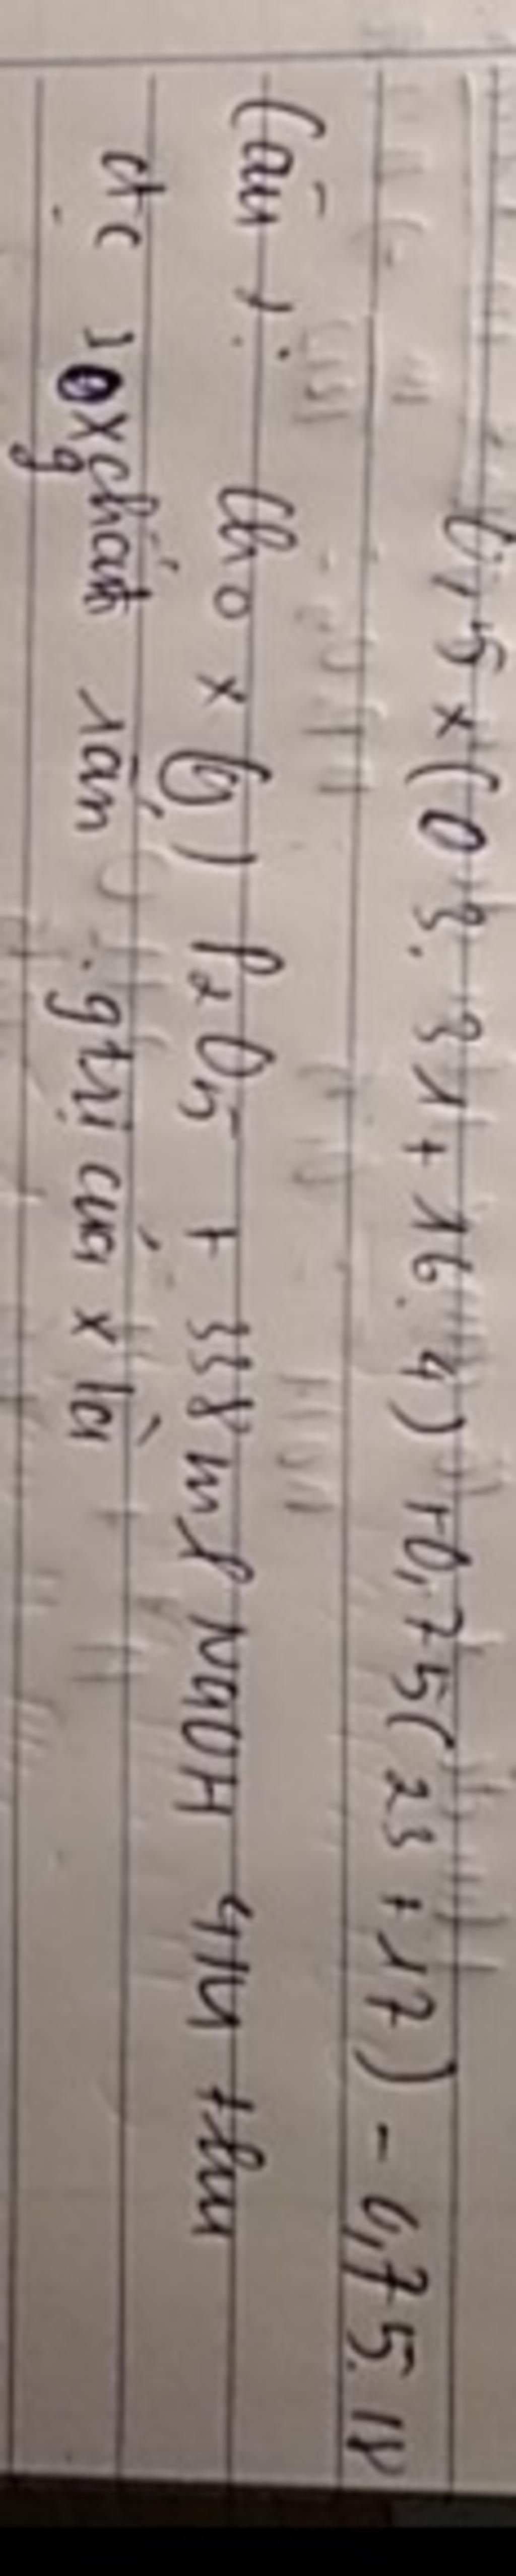 0,5 x (03. 31 + 16. 4) + 0,75 (23 + 17) - 0,75. 18
Câu 1: Cho x (g) P2O5 + 338 ml NaOH 4M thu
đc 10x g chất rắn. gtri của x là